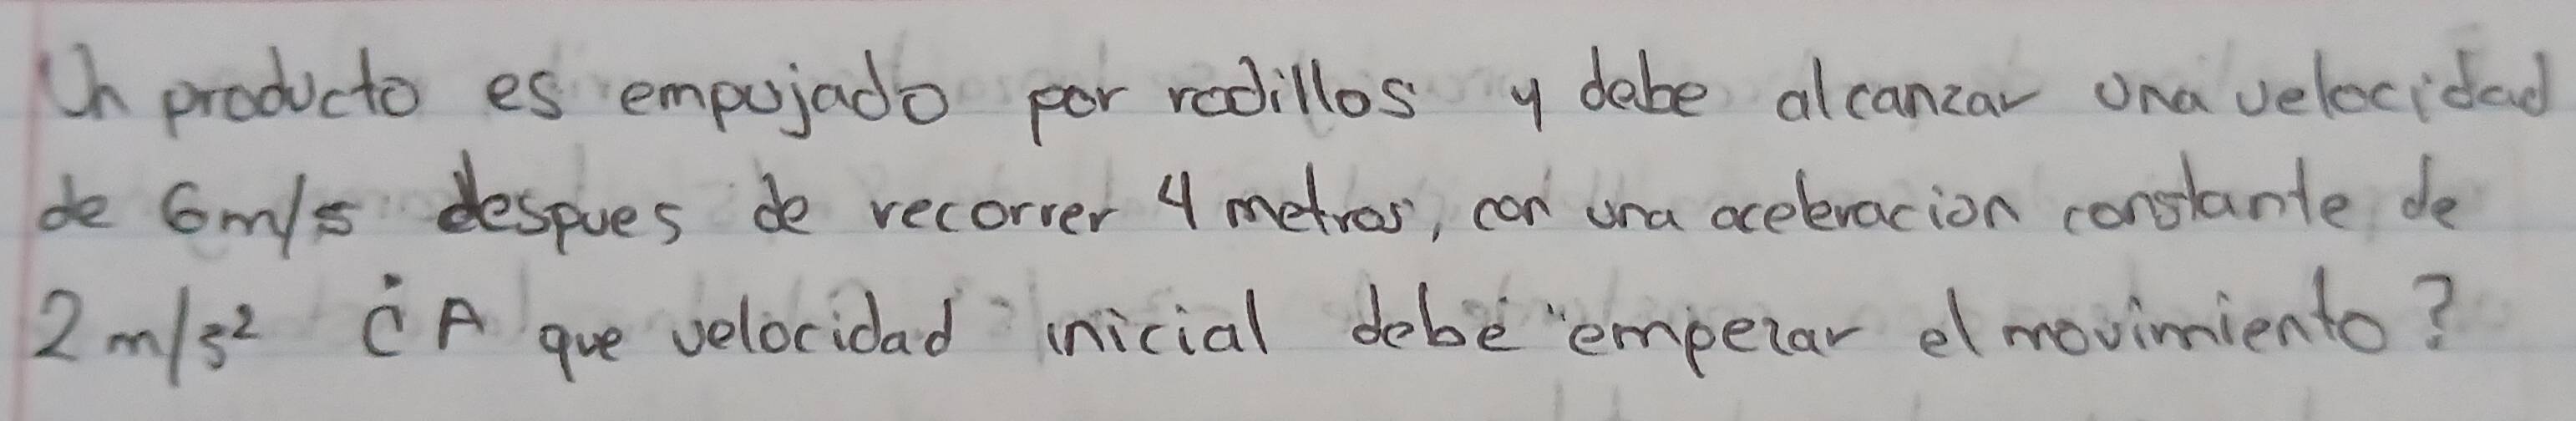 Un producto es empujado por rodillos y debe alcanzar una velocidad
de 6m/s despues de recorrer 4 metros, con una aceleracion constante de
2 m/s² ¿A que velocidad inicial debe empezar el movimiento?